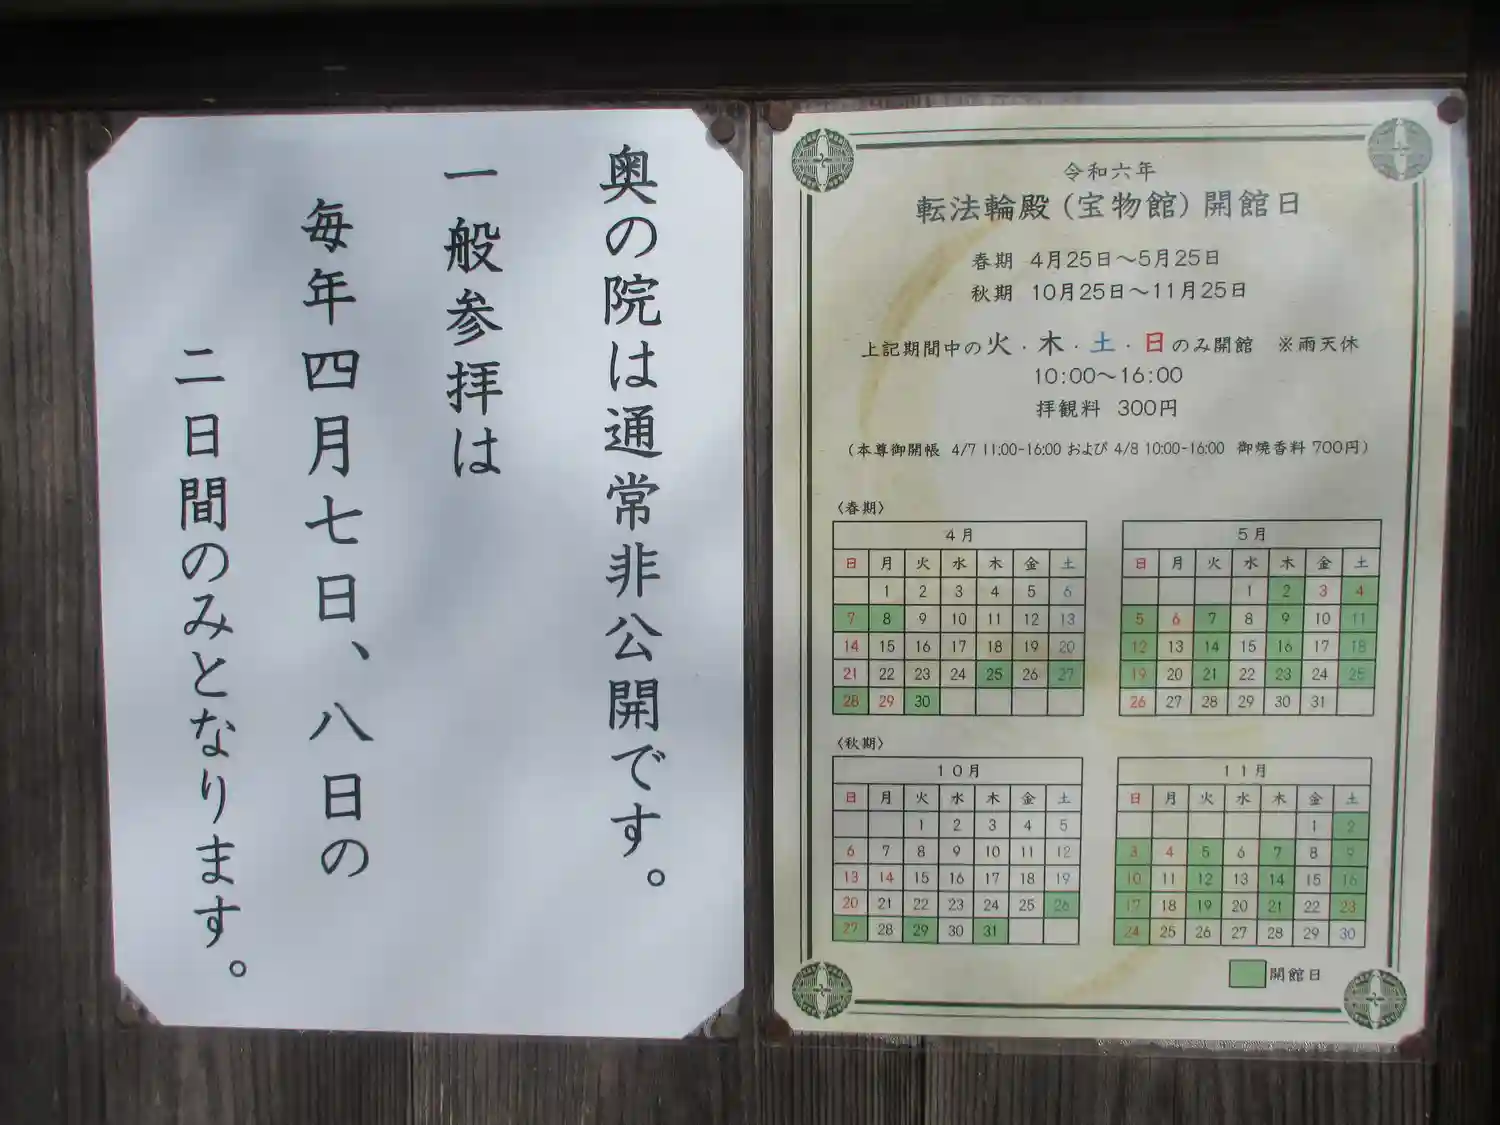 奥の院は通常非公開です。
一般参拝は
毎年四月七日、八日の
二日間のみとなります。
令和六年
転法輪殿（宝物館）開館日
春期 4月25日～5月25日
秋期 10月25日～11月25日
上記期間中の火・木・土・日のみ開館 ※雨天休
10:00～16:00
拝観料 300円
（本尊御開帳 4/7 11:00-16:00 および 4/8 10:00-16:00 御焼香料 700円）
〈春期〉
4月
日 月 火 水 木 金 土
1 2 3 4 5 6
7 8 9 10 11 12 13
14 15 16 17 18 19 20
21 22 23 24 25 26 27
28 29 30
5月
日 月 火 水 木 金 土
1 2 3 4
5 6 7 8 9 10 11
12 13 14 15 16 17 18
19 20 21 22 23 24 25
26 27 28 29 30 31
〈秋期〉
10月
日 月 火 水 木 金 土
1 2 3 4 5
6 7 8 9 10 11 12
13 14 15 16 17 18 19
20 21 22 23 24 25 26
27 28 29 30 31
11月
日 月 火 水 木 金 土
1 2
3 4 5 6 7 8 9
10 11 12 13 14 15 16
17 18 19 20 21 22 23
24 25 26 27 28 29 30
開館日